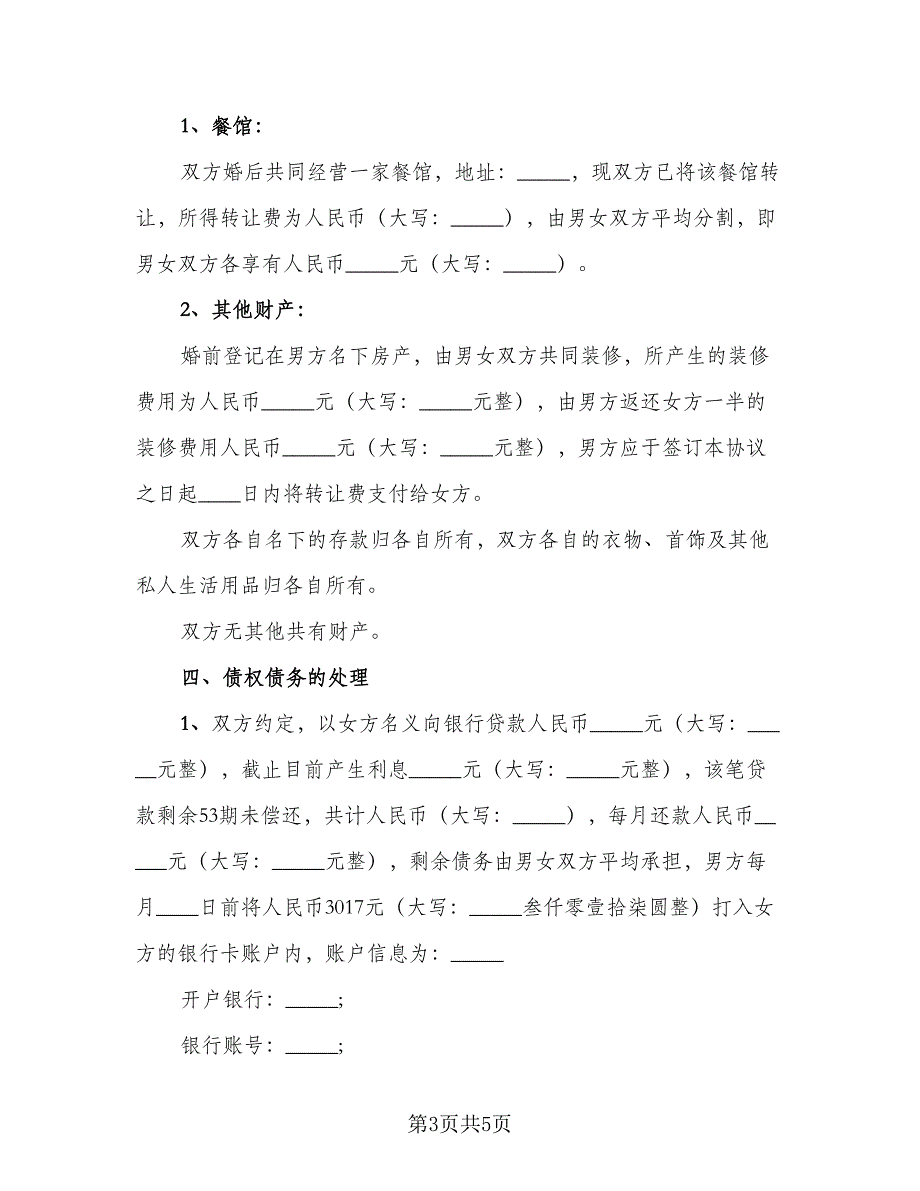 1、餐馆：
双方婚后共同经营一家餐馆，地址：_____，现双方已将该餐馆转
让，所得转让费为人民币（大写：_____），由男女双方平均分割，即
男女双方各享有人民币_____元（大写：_____）。
2、其他财产：
婚前登记在男方名下房产，由男女双方共同装修，所产生的装修
费用为人民币_____元（大写：_____元整），由男方返还女方一半的
装修费用人民币_____元（大写：_____元整），男方应于签订本协议
之日起____日内将转让费支付给女方。
双方各自名下的存款归各自所有，双方各自的衣物、首饰及其他
私人生活用品归各自所有。
双方无其他共有财产。
四、债权债务的处理
1、双方约定，以女方名义向银行贷款人民币_____元（大写：___
__元整），截止目前产生利息_____元（大写：_____元整），该笔贷
款剩余53期未偿还，共计人民币（大写：_____），每月还款人民币__
___元（大写：_____元整），剩余债务由男女双方平均承担，男方每
月____日前将人民币3017元（大写：_____叁仟零壹拾柒圆整）打入女
方的银行卡账户内，账户信息为：_____
开户银行：_____;
银行账号：_____;
第3页共5页